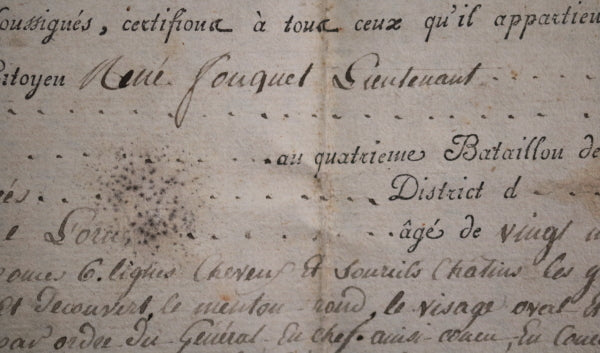 soussignés, certifions à tous ceux qu'il appartien
Citoyen René Fouquet Lieutenant
au quatrieme Bataillon de
District d
âgé de vingt
6. lignes Cheveux Et Sourcils Chatins les
Et decouvert, le menton rond, le visage oval Et
par ordre du Général En chef. ainsi concu, En